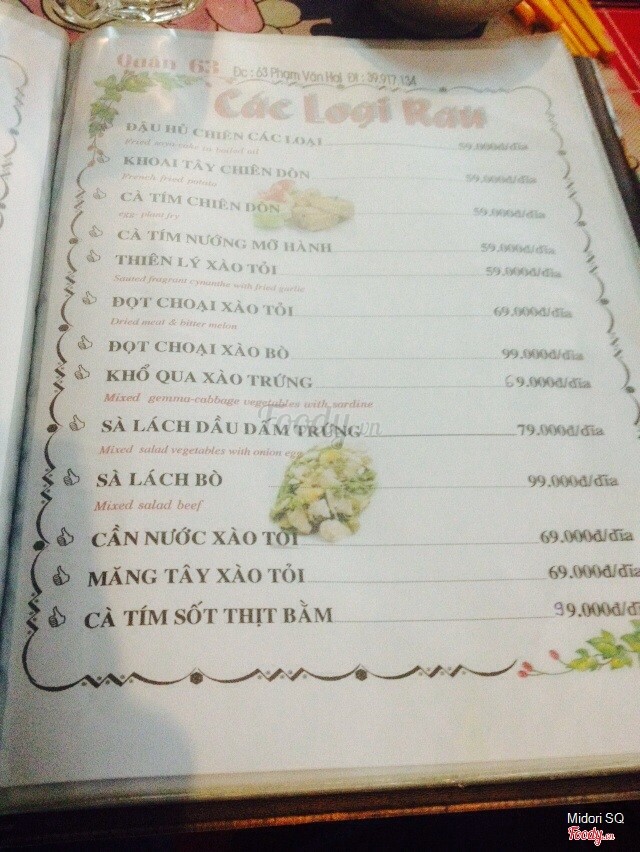 Quán 63 Đc : 63 Phạm Văn Hai Đt : 39.917.134
Các Loại Rau
ĐẬU HỦ CHIÊN CÁC LOẠI 59.000đ/đĩa
KHOAI TÂY CHIÊN DÒN 59.000đ/đĩa
French fried potato
CÀ TÍM CHIÊN DÒN 59.000đ/đĩa
egg plant fry
CÀ TÍM NƯỚNG MỠ HÀNH 59.000đ/đĩa
THIÊN LÝ XÀO TỎI 59.000đ/đĩa
Sauted fragrant cynanthe with fried garlic
ĐỌT CHOẠI XÀO TỎI 69.000đ/đĩa
Dried meat & bitter melon
ĐỌT CHOẠI XÀO BÒ 99.000đ/đĩa
KHỔ QUA XÀO TRỨNG 69.000đ/đĩa
Mixed gemma-cabbage vegetables with sardine
SÀ LÁCH DẦU DẤM TRỨNG 79.000đ/đĩa
Mixed salad vegetables with onion egg
SÀ LÁCH BÒ 99.000đ/đĩa
Mixed salad beef
CẦN NƯỚC XÀO TỎI 69.000đ/đĩa
MĂNG TÂY XÀO TỎI 69.000đ/đĩa
CÀ TÍM SỐT THỊT BẰM 99.000đ/đĩ
Foody.vn
Midori SQ
Foody.vn